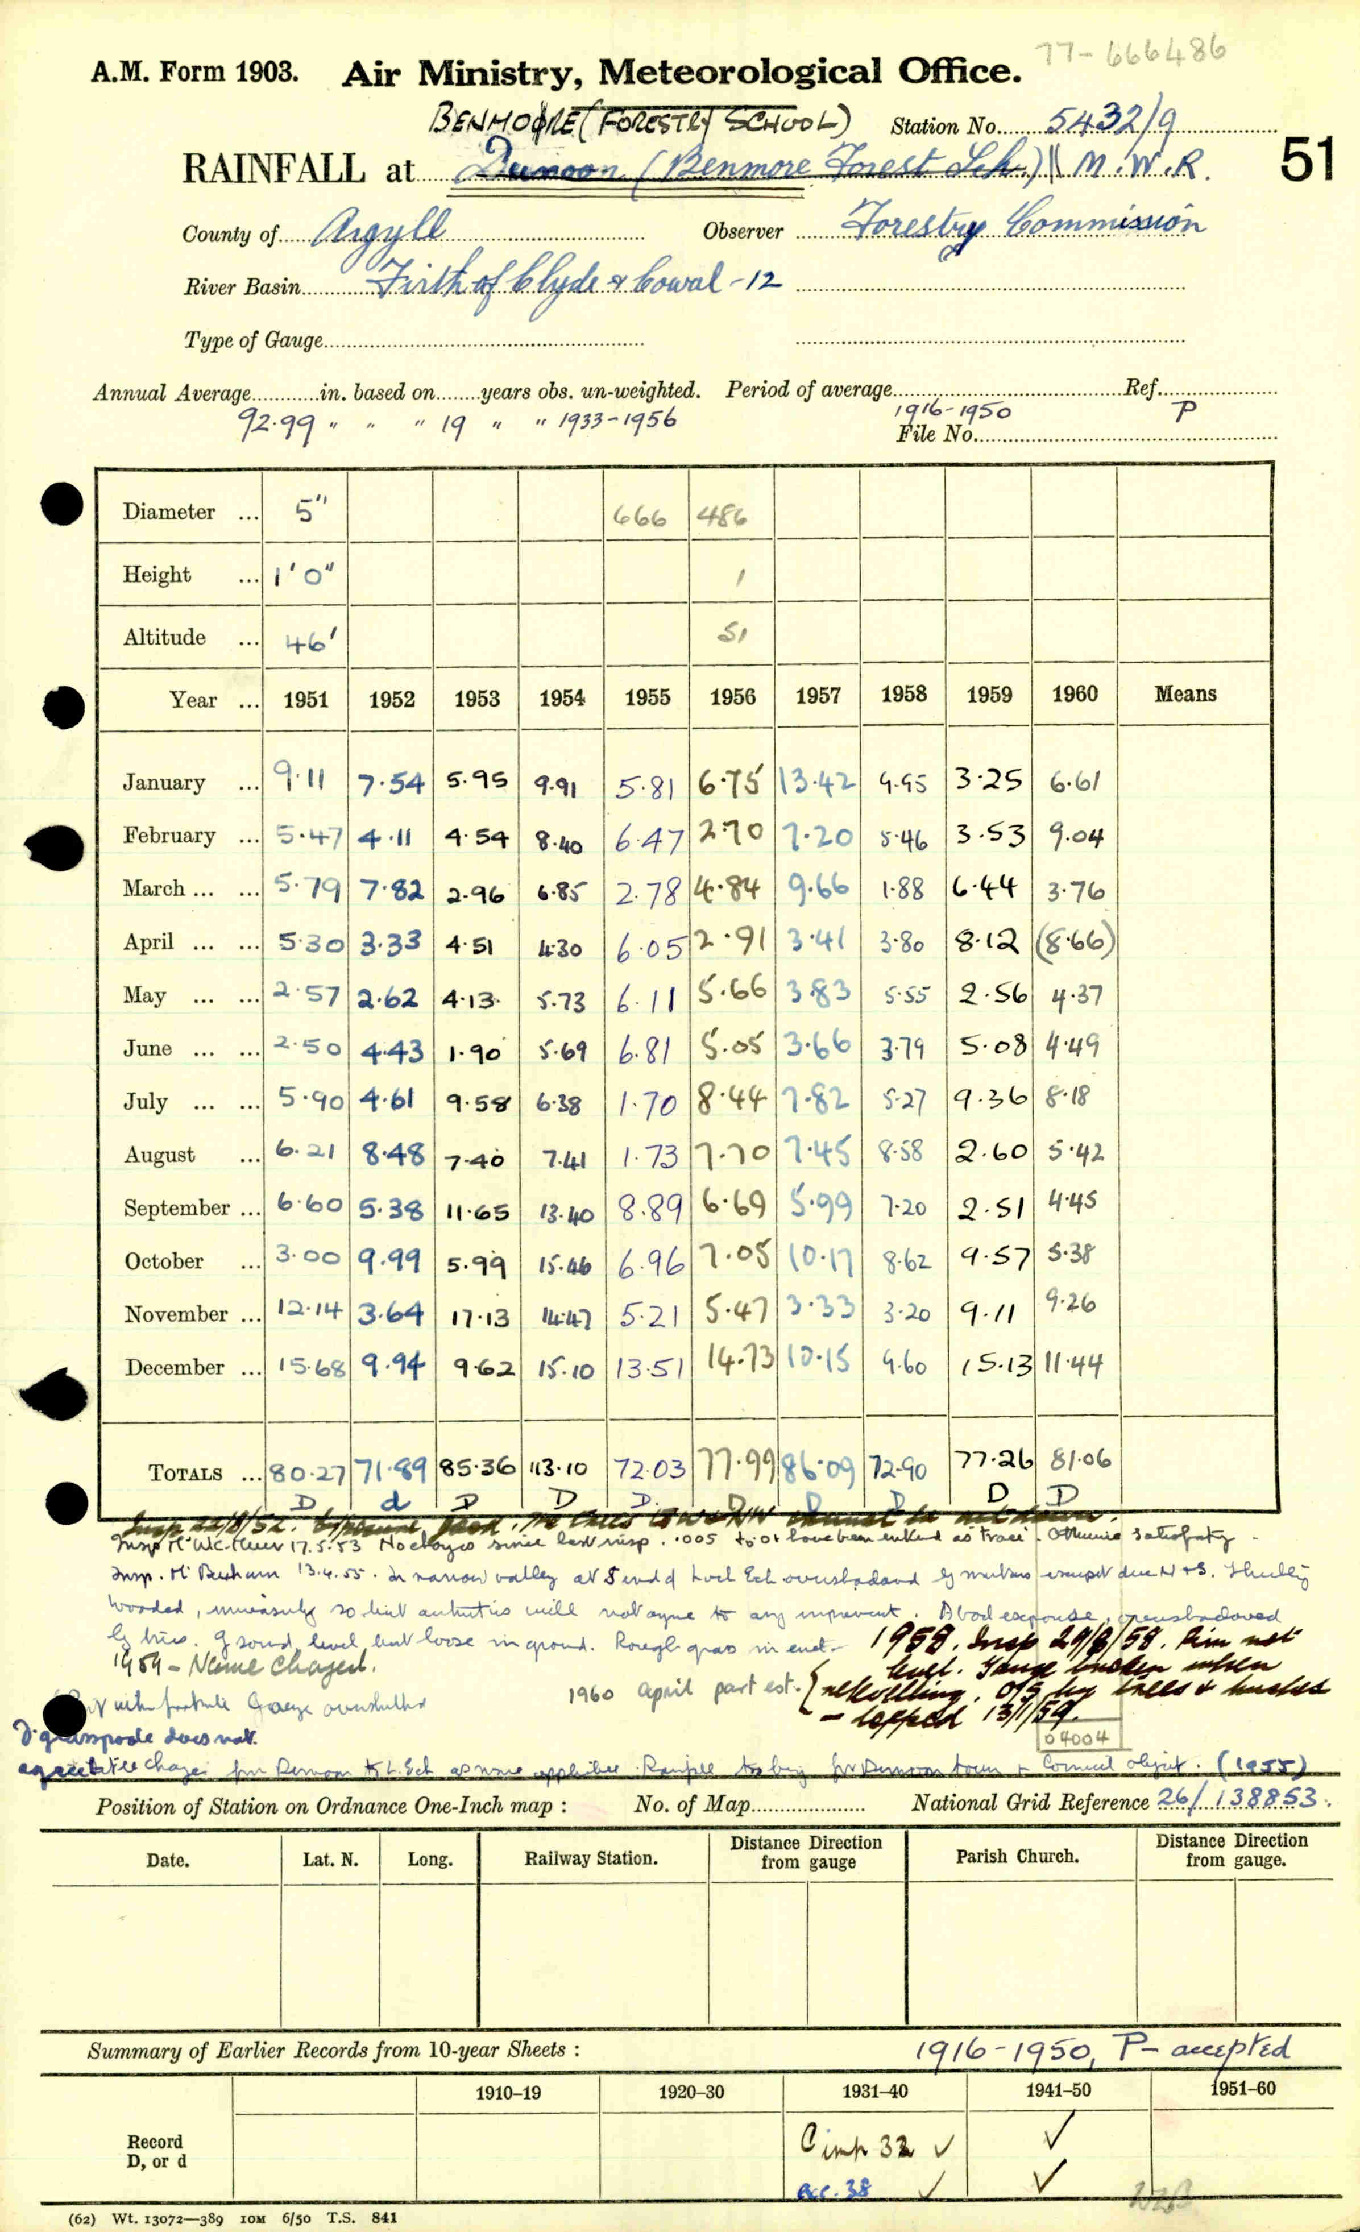 77-666486
A.M. Form 1903. Air Ministry, Meteorological Office.
BENMORE (FORESTRY SCHOOL) Station No. 5432/9
RAINFALL at Dunoon (Benmore Forest Sch.) M.W.R. 51
County of Argyll Observer Forestry Commission
River Basin Firth of Clyde & Cowal - 12
Type of Gauge
Annual Average in. based on years obs. un-weighted. Period of average Ref.
92.99 " " " 19 " " 1933-1956 1916-1950 P
File No.
Diameter ... 5" 666 486
Height ... 1'0" 1
Altitude ... 46' 51
Year ... 1951 1952 1953 1954 1955 1956 1957 1958 1959 1960 Means
January ... 9.11 7.54 5.95 9.91 5.81 6.75 13.42 9.95 3.25 6.61
February ... 5.47 4.11 4.54 8.40 6.47 2.70 7.20 5.46 3.53 9.04
March ... ... 5.79 7.82 2.96 6.85 2.78 4.84 9.66 1.88 6.44 3.76
April ... ... 5.30 3.33 4.51 4.30 6.05 2.91 3.41 3.80 8.12 (8.66)
May ... ... 2.57 2.62 4.13 5.73 6.11 5.66 3.83 5.55 2.56 4.37
June ... ... 2.50 4.43 1.90 5.69 6.81 5.05 3.66 3.79 5.08 4.49
July ... ... 5.90 4.61 9.58 6.38 1.70 8.44 7.82 5.27 9.36 8.18
August ... 6.21 8.48 7.40 7.41 1.73 7.70 7.45 8.58 2.60 5.42
September ... 6.60 5.38 11.65 13.40 8.89 6.69 5.99 7.20 2.51 4.45
October ... 3.00 9.99 5.99 15.46 6.96 7.05 10.17 8.62 9.57 5.38
November ... 12.14 3.64 17.13 14.47 5.21 5.47 3.33 3.20 9.11 9.26
December ... 15.68 9.94 9.62 15.10 13.51 14.73 10.15 9.60 15.13 11.44
TOTALS ... 80.27 71.89 85.36 113.10 72.03 77.99 86.09 72.90 77.26 81.06
D d D D D D D D D D
Insp 22/8/52. Exposure good.
Insp 17.5.53 No changes since last insp. .005 to .01 have been entered as trace. Otherwise satisfactory
Insp. 13.4.55. In narrow valley at S end of Loch Eck overshadowed by
wooded, will not agree to any improvement. overshadowed
by trees. Ground level but loose in ground. Rough grass in encl. 1958. Insp 29/8/58. Rim not
1959 - Name changed. level. Gauge broken when
1960 April part est. relevelling. O/S by trees & bushes
- lopped 13/1/59.
does not 04004
agree (1955)
Position of Station on Ordnance One-Inch map : No. of Map National Grid Reference 26/138853.
Date. Lat. N. Long. Railway Station. Distance Direction from gauge Parish Church. Distance Direction from gauge.
Summary of Earlier Records from 10-year Sheets : 1916-1950, P - accepted
1910–19 1920–30 1931–40 1941–50 1951–60
Record
D, or d
C imp 32 ✓ ✓
acc. 38 ✓ ✓
(62) Wt. 13072—389 10M 6/50 T.S. 841